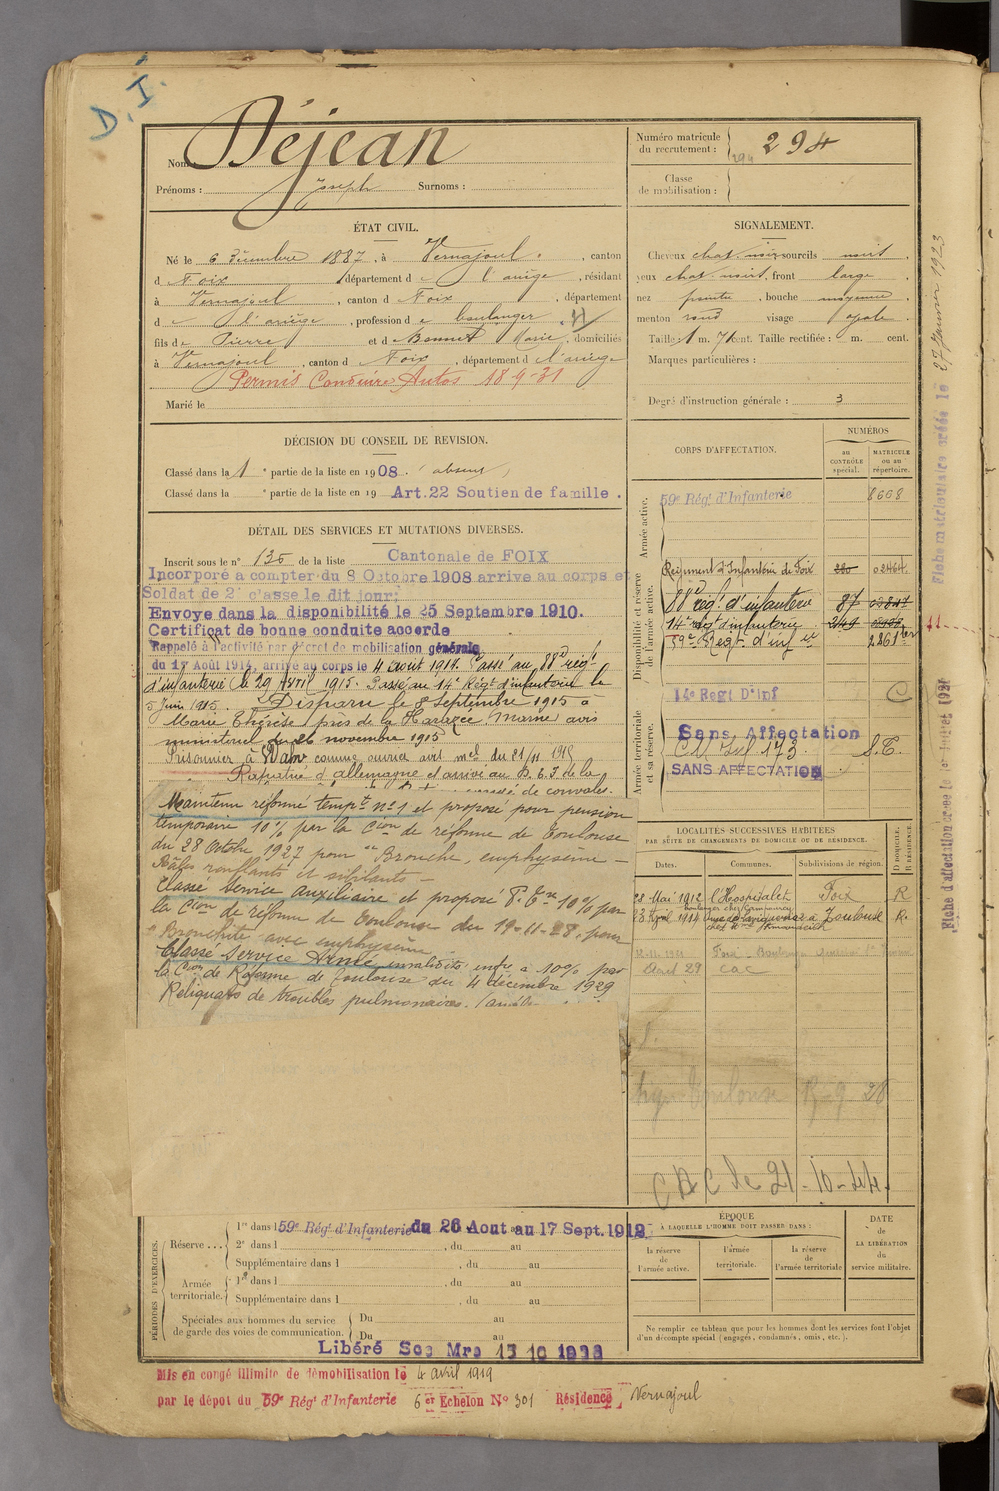 D. I.
Nom : Déjean
Prénoms : Joseph Surnoms :
Numéro matricule
du recrutement : 294 294
Classe
de mobilisation :
ÉTAT CIVIL.
Né le 6 Décembre 1887, à Vernajoul, canton
d Foix département d e l'ariège, résidant
à Vernajoul, canton d Foix, département
d e l'ariège, profession d e boulanger
fils de Pierre et d e Bonnet Marie, domiciliés
à Vernajoul, canton d Foix, département d l'ariège
Permis Conduire Autos 18-9-31
Marié le
SIGNALEMENT.
Cheveux chat. noir sourcils noirs,
yeux chat. noirs, front large
nez pointu, bouche moyenne,
menton rond visage ovale.
Taille : 1 m. 71 cent. Taille rectifiée : m. cent.
Marques particulières :
Degré d'instruction générale : 3
DÉCISION DU CONSEIL DE REVISION.
Classé dans la 1 e partie de la liste en 1908. (absent)
Classé dans la e partie de la liste en 19 Art. 22 Soutien de famille.
DÉTAIL DES SERVICES ET MUTATIONS DIVERSES.
Inscrit sous le n° 135 de la liste Cantonale de FOIX
Incorporé a compter du 8 Octobre 1908 arrive au corps et
Soldat de 2e c'asse le dit jour;
Envoye dans la disponibilité le 25 Septembre 1910.
Certificat de bonne conduite accorde
Rappelé à l'activité par décret de mobilisation générale
du 1er Août 1914, arrivé au corps le 4 août 1914. Passé au 88e régt
d'infanterie le 29 Avril 1915. Passé au 14e Régt d'infanterie le
5 Juin 1915. Disparu le 8 Septembre 1915 à
Marie Thérèse près de la Harazée Marne avis
ministeriel du 26 novembre 1915
Prisonnier à comme ouvrier avis mel du 21/11 1915
Rapatrié d'allemagne et arrivé au D. C. I de la
de convales.
Maintenu réformé tempre n° 1 et proposé pour pension
temporaire 10 % par la Cion de réforme de Toulouse
du 28 Octobre 1927 pour "Bronchite, emphysème -
Râles ronflants et sibilants -
Classé Service Auxiliaire et proposé P. Tre 10 % par
la Cion de réforme de Toulouse du 19-11-28 pour
"Bronchite avec emphysème
Classé Service Armé, invalidité infre à 10 % par
la Cion de Réforme de Toulouse du 4 décembre 1929
Reliquats de troubles pulmonaires.
CORPS D'AFFECTATION.
NUMÉROS
au
CONTRÔLE
spécial.
MATRICULE
ou au
répertoire.
Armée active.
59e Régt d'Infanterie 8608
Disponibilité et réserve
de l'armée active.
Régiment d'Infanterie de Foix 02464
88e régt d'infanterie 87
14e régt d'infanterie 249
59e Régt d'inf ie 2261 ter
Armée territoriale
et sa réserve.
14e Regt D'inf C
Sans Affectation
173. S.T.
SANS AFFECTATION
LOCALITÉS SUCCESSIVES HABITÉES
PAR SUITE DE CHANGEMENTS DE DOMICILE OU DE RÉSIDENCE.
Dates. Communes. Subdivisions de région. D DOMICILE. R RÉSIDENCE.
28 Mai 1912 l'Hospitalet Foix R
23 Avril 1914 Toulouse R.
Foix
Avril 29 CAC
Toulouse
CAC le 21-10-
PÉRIODES D'EXERCICES.
Réserve ... 1re dans l 59e Régt d'Infanterie du 26 Aout au 17 Sept. 1912
2e dans l , du au
Supplémentaire dans l , du au
Armée
territoriale. 1re dans l , du au
Supplémentaire dans l , du au
Spéciales aux hommes du service
de garde des voies de communication. Du au
Du au
Libéré Sce Mre 15 10 1936
ÉPOQUE
À LAQUELLE L'HOMME DOIT PASSER DANS :
la réserve
de
l'armée active.
l'armée
territoriale.
la réserve
de
l'armée territoriale
DATE
de
LA LIBÉRATION
du
service militaire.
Ne remplir ce tableau que pour les hommes dont les services font l'objet
d'un décompte spécial (engagés, condamnés, omis, etc.).
Mis en congé illimité de démobilisation le 4 avril 1919
par le dépot du 59e Régt d'Infanterie 6er Echelon N° 301 Résidence Vernajoul
Fiche matriculaire créée le 27 Janvier 1923
Fiche d'affectation créée le 1er Juillet 1921